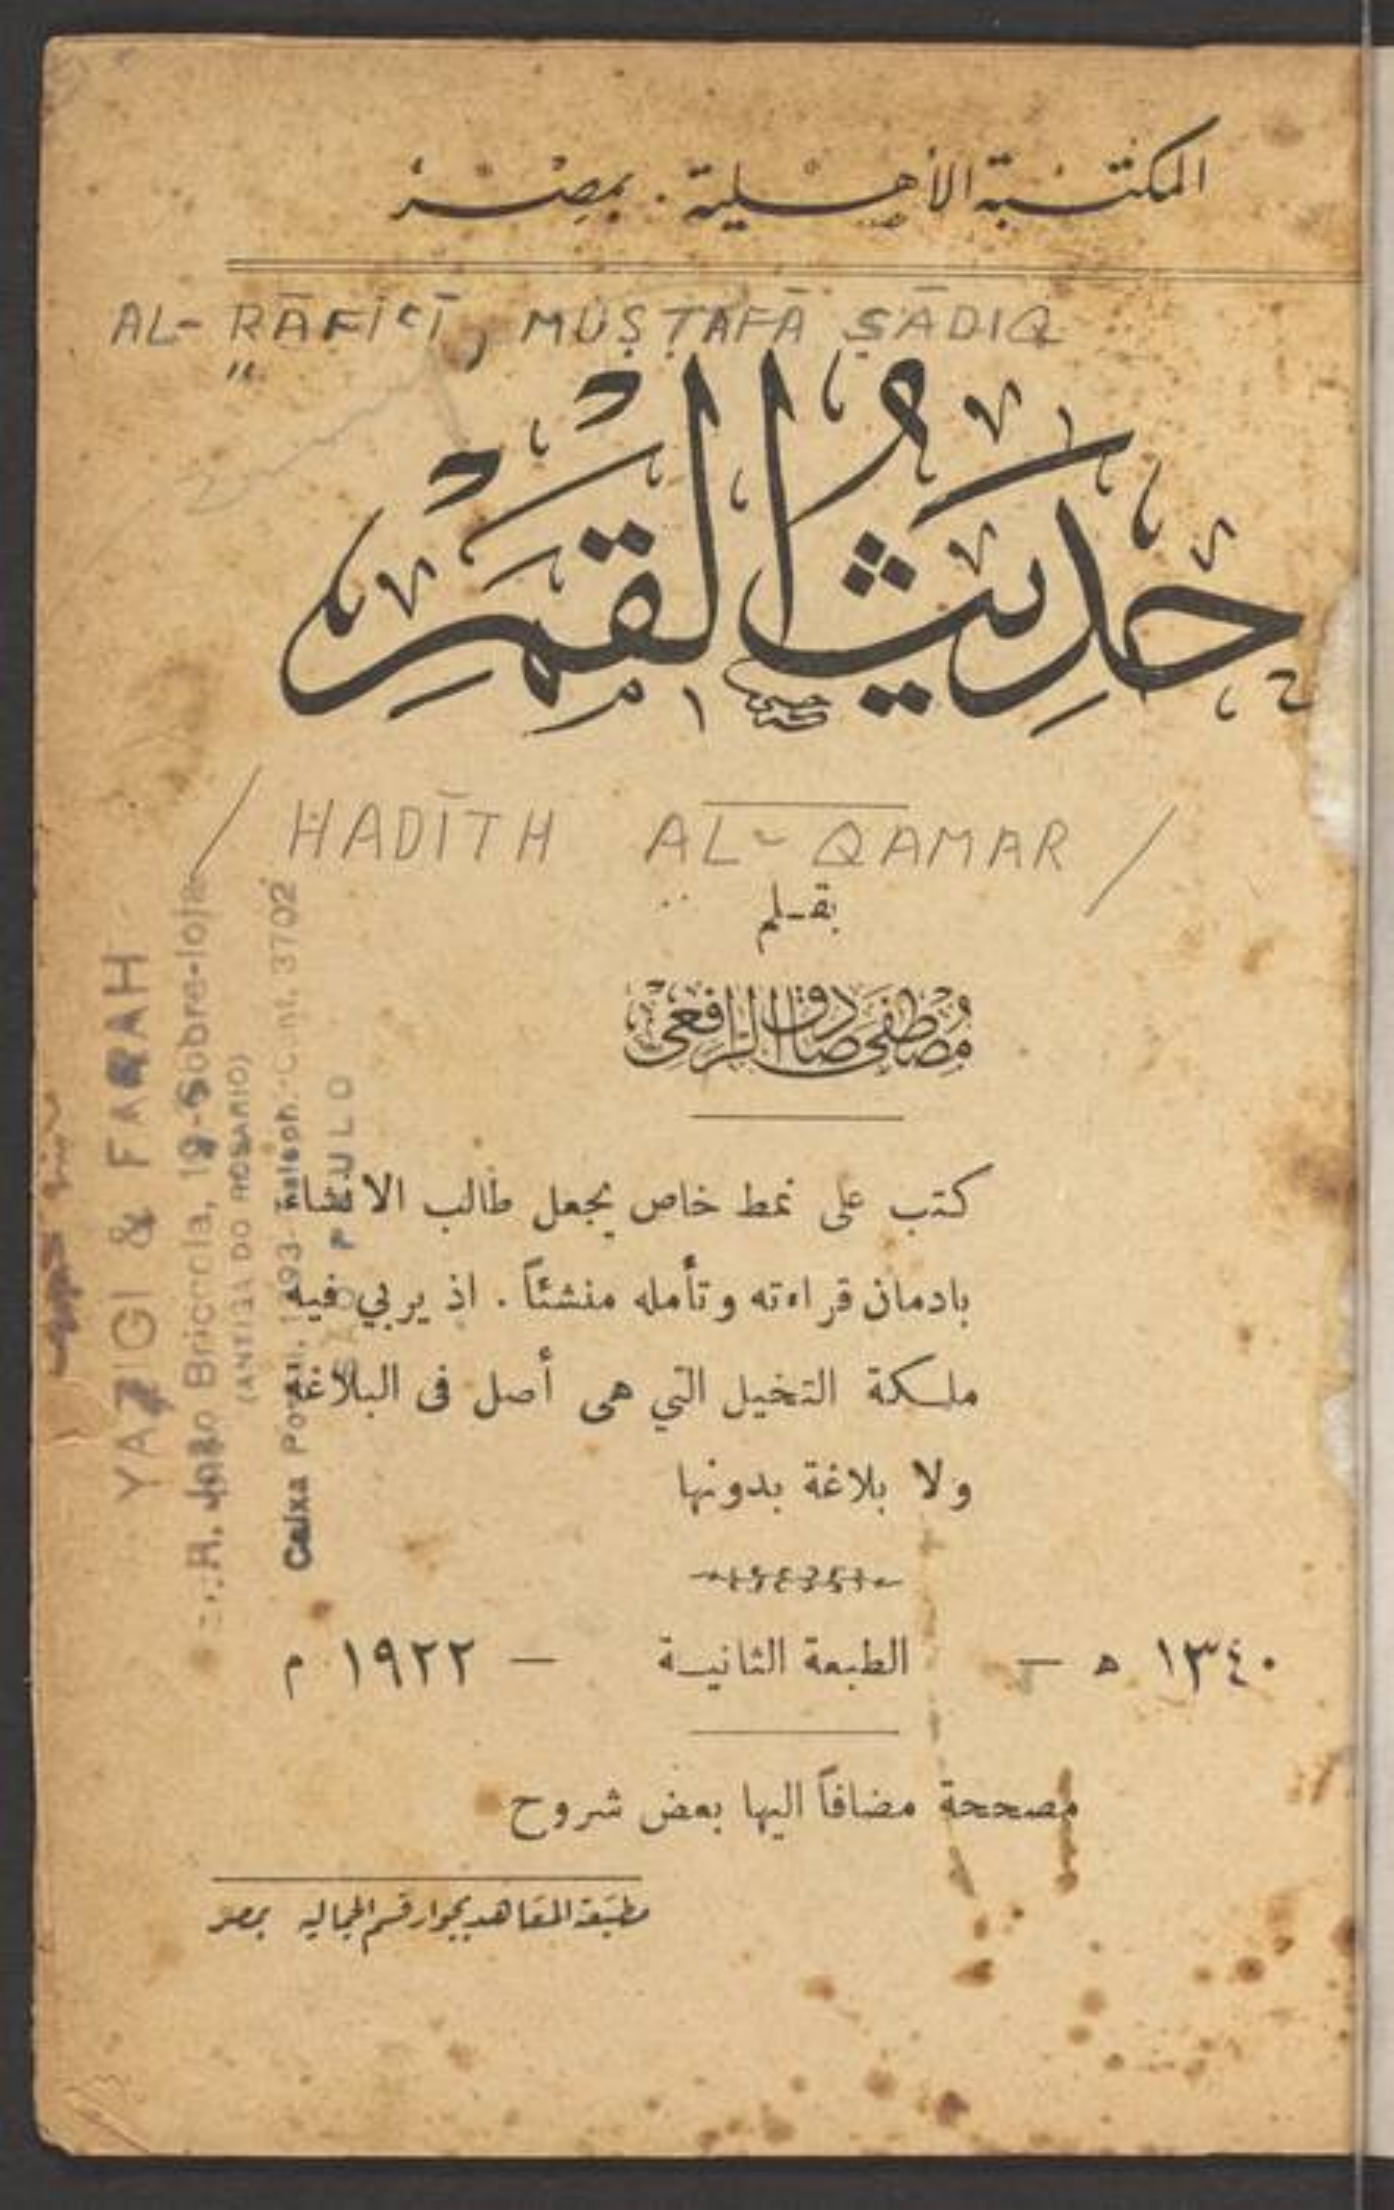 المكتبة الأهلية . بمصر
AL-RĀFIʿĪ, MUṢṬAFĀ ṢĀDIQ
حديث القمر
/ ḤADĪTH AL-QAMAR /
بقلم
مصطفى صادق الرافعي
كتب على نمط خاص يجعل طالب الانشاء
بادمان قراءته وتأمله منشئاً . اذ يربي فيه
ملكة التخيل التي هى أصل فى البلاغة
ولا بلاغة بدونها
١٣٤٠ ه — الطبعة الثانية — ١٩٢٢ م
مصححة مضافاً اليها بعض شروح
مطبعة المعاهد بجوار قسم الجمالية بمصر
YAZIGI & FARAH
R. João Briccola, 19-Sobre-loja
(ANTIGA DO ROSARIO)
Caixa Postal, 1393- Teleph. Cent. 3702
SÃO PAULO